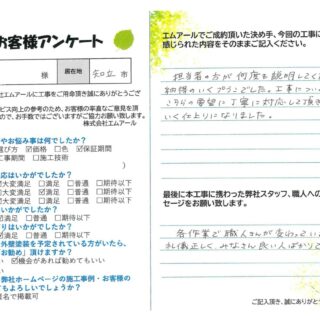 お客様アンケート
様
居住地
知立市
エムアールに工事をご用命頂き誠にありがとうござ
ビス向上の参考のため、お客様の率直なご意見を頂
ので、お手数ではございますがご協力お願い致します。
株式会社エムアール
やお悩み事は何でしたか?
選び方 ☑価格 □色 ☑保証期間
工事期間 □施工技術
応はいかがでしたか?
☑大変満足 □満足 □普通 □期待以下
大変満足 □満足 □普通 □期待以下
いかがでしたか?
□満足 □普通 □期待以下
りはいかがでしたか?
□満足 □普通 □期待以下
外壁塗装を予定されている方がいたら、
「お勧め」頂けますか?
い ☑機会があれば勧めてもいい
弊社ホームページの施工事例・お客様の
てもよろしいでしょうか?
名で掲載可
エムアールでご成約頂いた決め手、今回の工事に
感じられた内容をそのままご記入ください。
担当者の方が何度も説明してくだ
納得のいくプランでした。工事につい
こちらの要望に丁寧に対応して頂き
いく仕上りになりました。
最後に本工事に携わった弊社スタッフ、職人への
セージをお願い致します。
各作業で職人さんが変わってい
礼儀正しく、みなさん良い人ばかりで
ご記入頂き、誠にありがとう